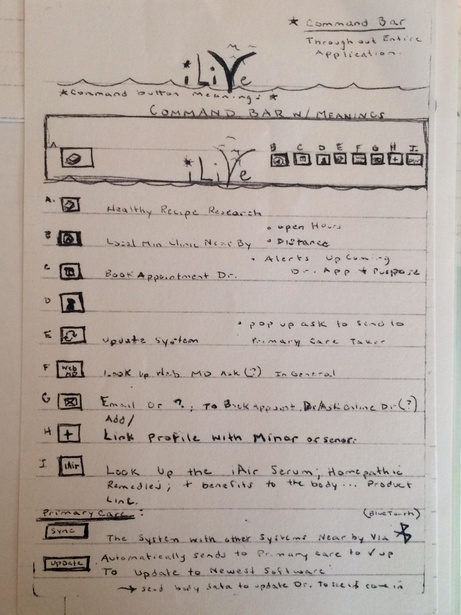 * Command Bar
Throughout Entire
Application.
*iLiVe
*Command button Meanings: *
COMMAND BAR W/ MEANINGS
B C D E F G H I
*iLiVe
A. Healthy Recipe Research
• open Hours
B Local Min Clinic Near By • Distance
• Alerts Up Coming
C Book Appointment Dr. Dr. App + Purpose
D
• pop up ask to send to
E Update System Primary Care Taker
F Web MD Look up Web MD Ask (?) In General
G Email Dr ?; To Book appoint. Dr/Ask Online Dr (?)
Add/
H + Link Profile with Minor or senor.
I iAir Look Up the iAir Serum; Homepathic
Remedies; + benefits to the body... Product
Link.
Primary Care: (BlueTooth)
Sync The System with other Systems Near by Via
Update Automatically sends to Primary care to √ up
To Update to Newest Software
→ send body data to update Dr. To come in